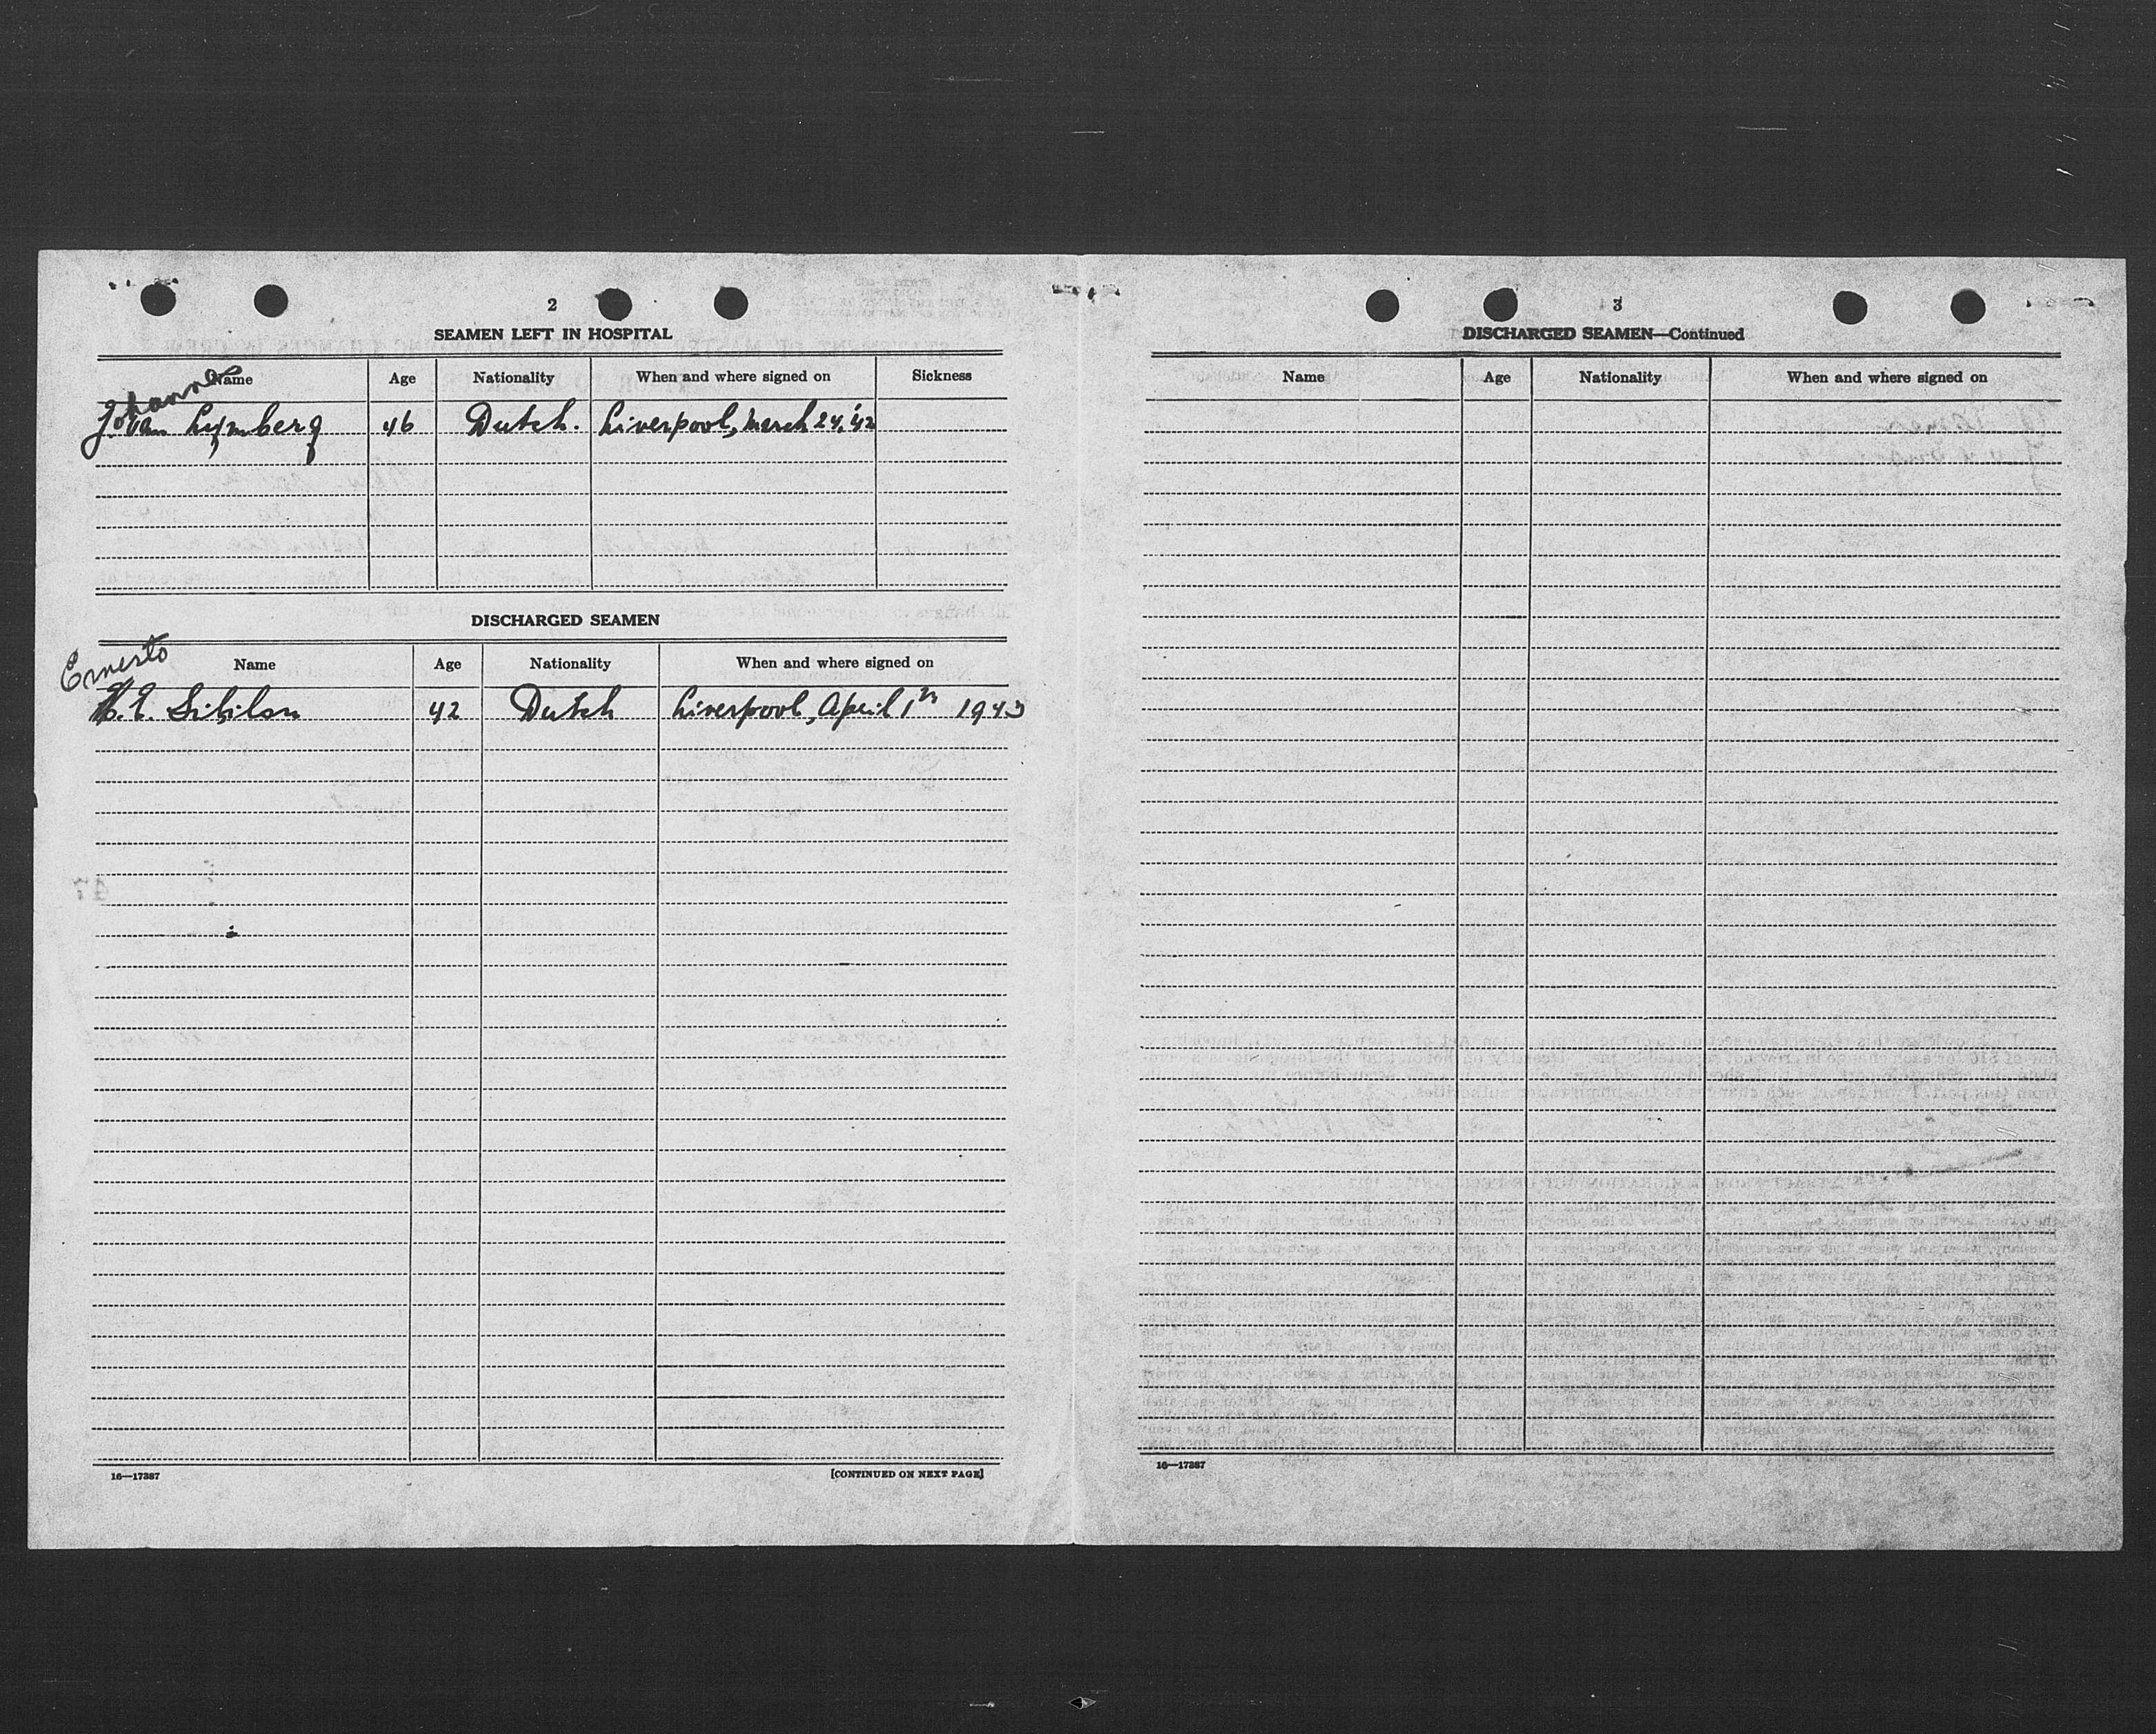 2
SEAMEN LEFT IN HOSPITAL
Name Age Nationality When and where signed on Sickness
Johannes
46 Dutch. Liverpool, March 24, '42
DISCHARGED SEAMEN
Name Age Nationality When and where signed on
Ernesto
E. 42 Dutch Liverpool, April 1th 1943
16—17387
[CONTINUED ON NEXT PAGE]
3
DISCHARGED SEAMEN—Continued
Name Age Nationality When and where signed on
16—17387